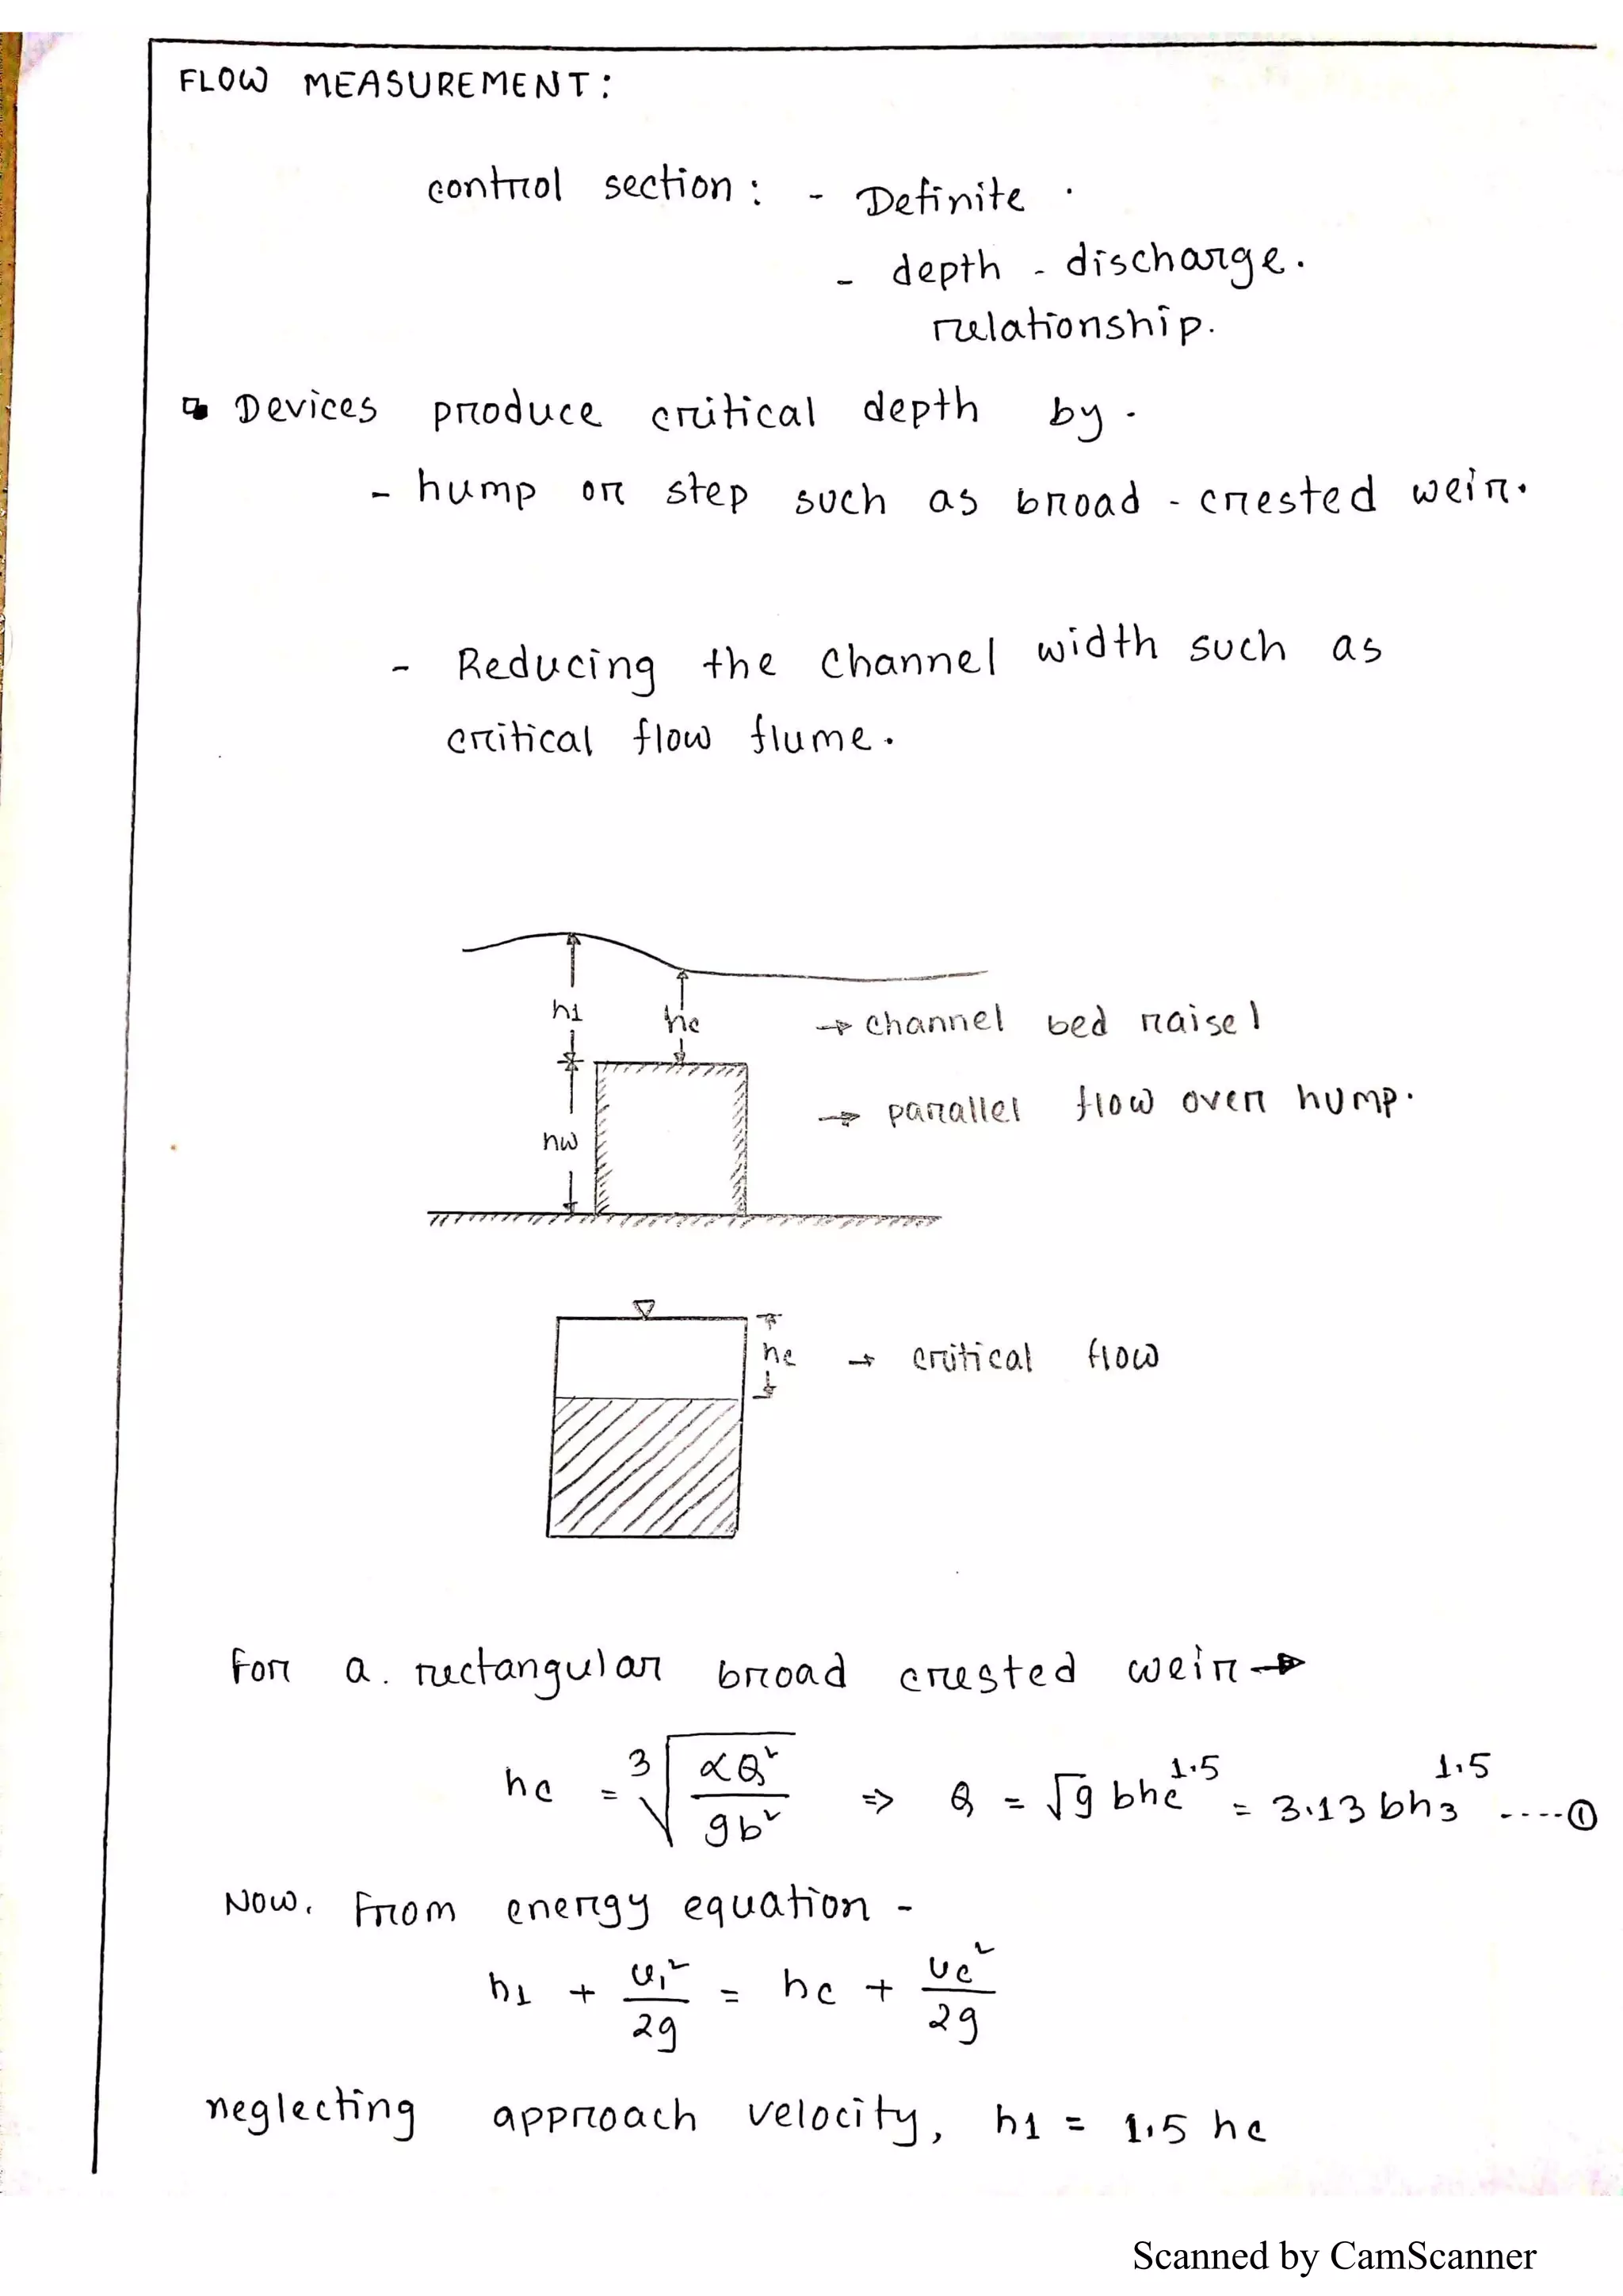 FLOW MEASUREMENT:
control section: - Definite .
- depth - discharge.
relationship.
Devices produce critical depth by -
- hump or step such as broad - crested weir.
- Reducing the channel width such as
critical flow flume.
h1
hc
→ channel bed raise1
→ parallel flow over hump.
hw
hc → critical flow
For a. rectangular broad crested weir →
hc = ∛(αQ²/gb²) ⇒ Q = √g bhc^1.5 = 3.13 bh3^1.5 ----①
Now, From energy equation -
h1 + u₁²/2g = hc + uc²/2g
neglecting approach velocity, h1 = 1.5 hc
Scanned by CamScanner